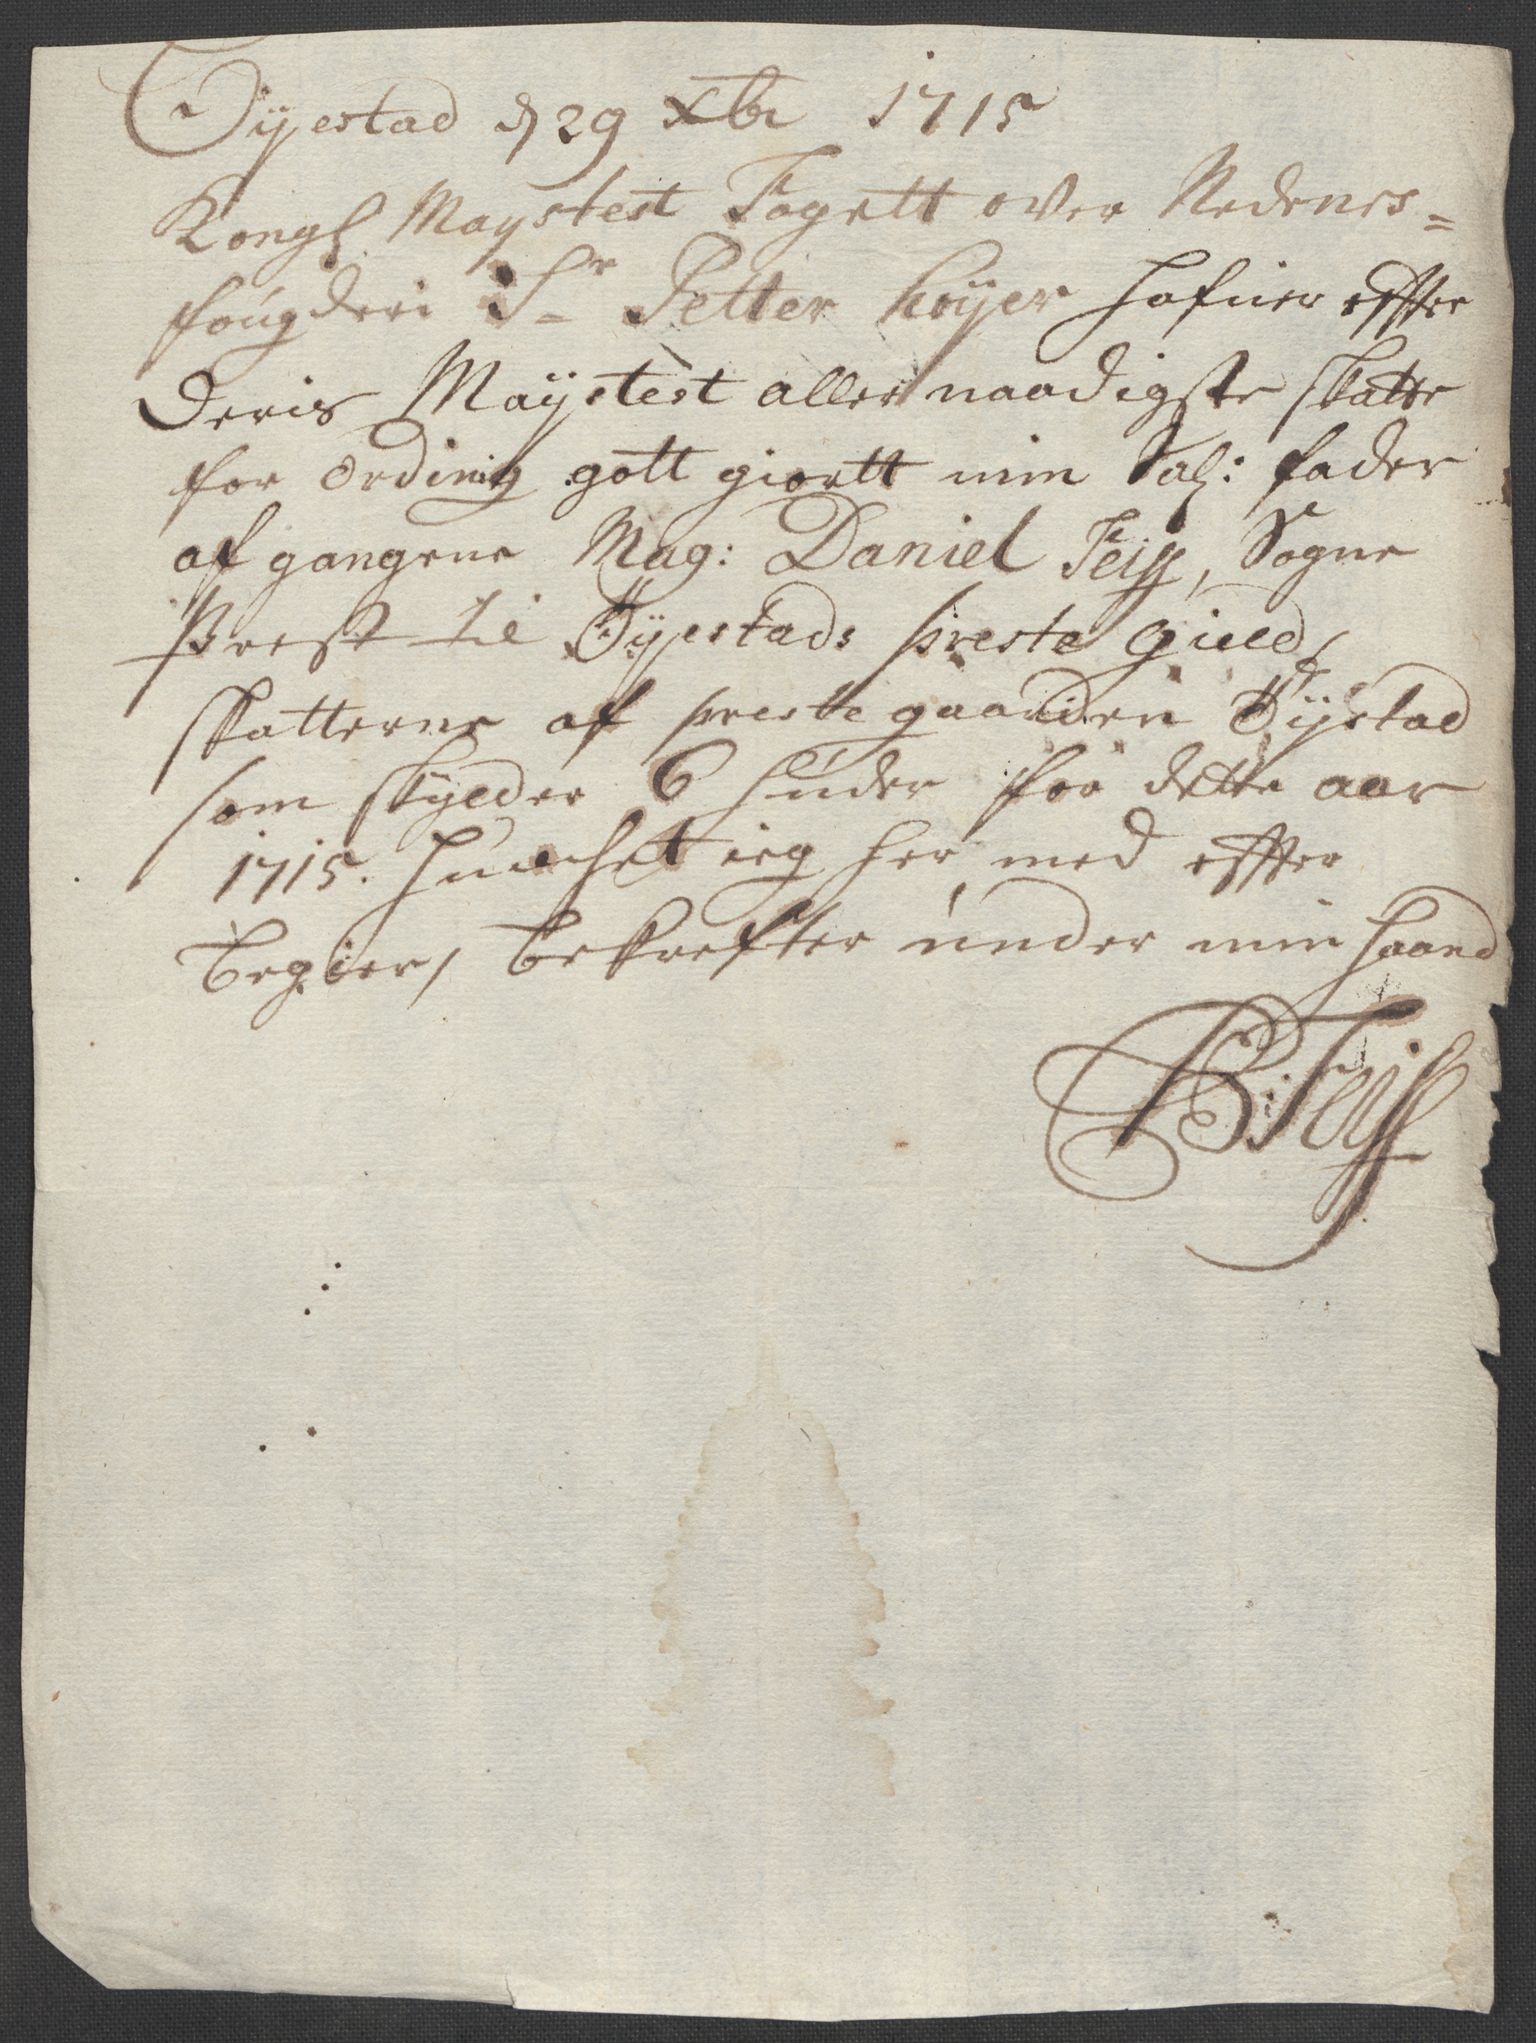 Øyestad d 29 Xbr 1715
Kongl Maystest Fogett over Nedenes=
fougderi Sr Petter höyer hafuer effter
Deris Mayestest aller naadigste skatte
for ordinig gott giortt min Sal: fader
af gangene Mag: Daniel Teiss, Sogne
Prest til Øyestads preste gield,
skatterne af preste gaarden Øyestad
som skylder 6 huder for dette aar
1715. huilchet ieg her med effter
begier, bekrefter under min haand
B: Teiss